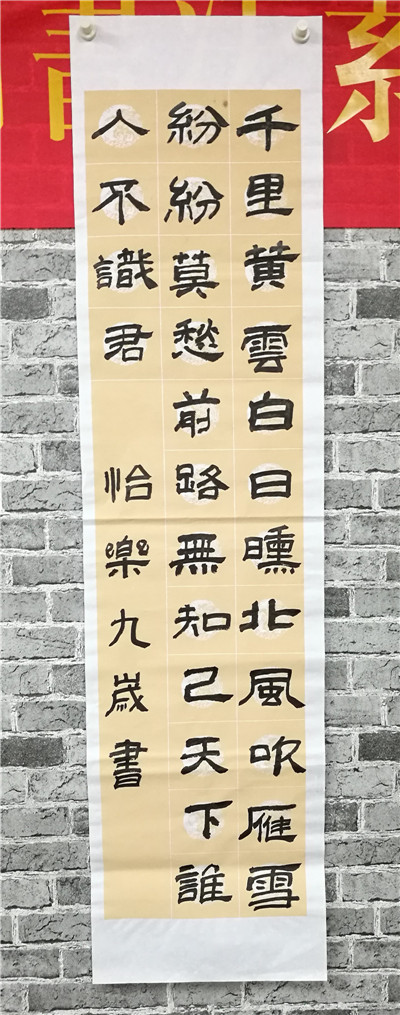 千里黄雲白日曛北風吹雁雪
紛紛莫愁前路無知己天下誰
人不識君
怡樂九歲書